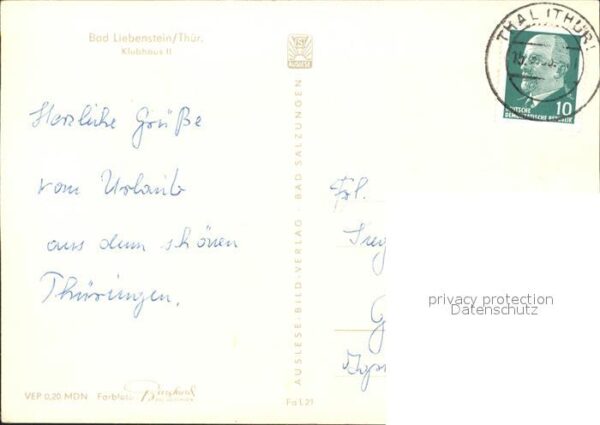 Bad Liebenstein/Thür.
Klubhaus II
Herzliche Grüße
vom Urlaub
aus dem schönen
Thüringen.
VEP 0,20 MDN Farbfoto
AUSLESE-BILD-VERLAG - BAD SALZUNGEN
Fa L 21
THAL (THÜR)
10
DEUTSCHE
DEMOKRATISCHE REPUBLIK
Frl.
privacy protection
Datenschutz